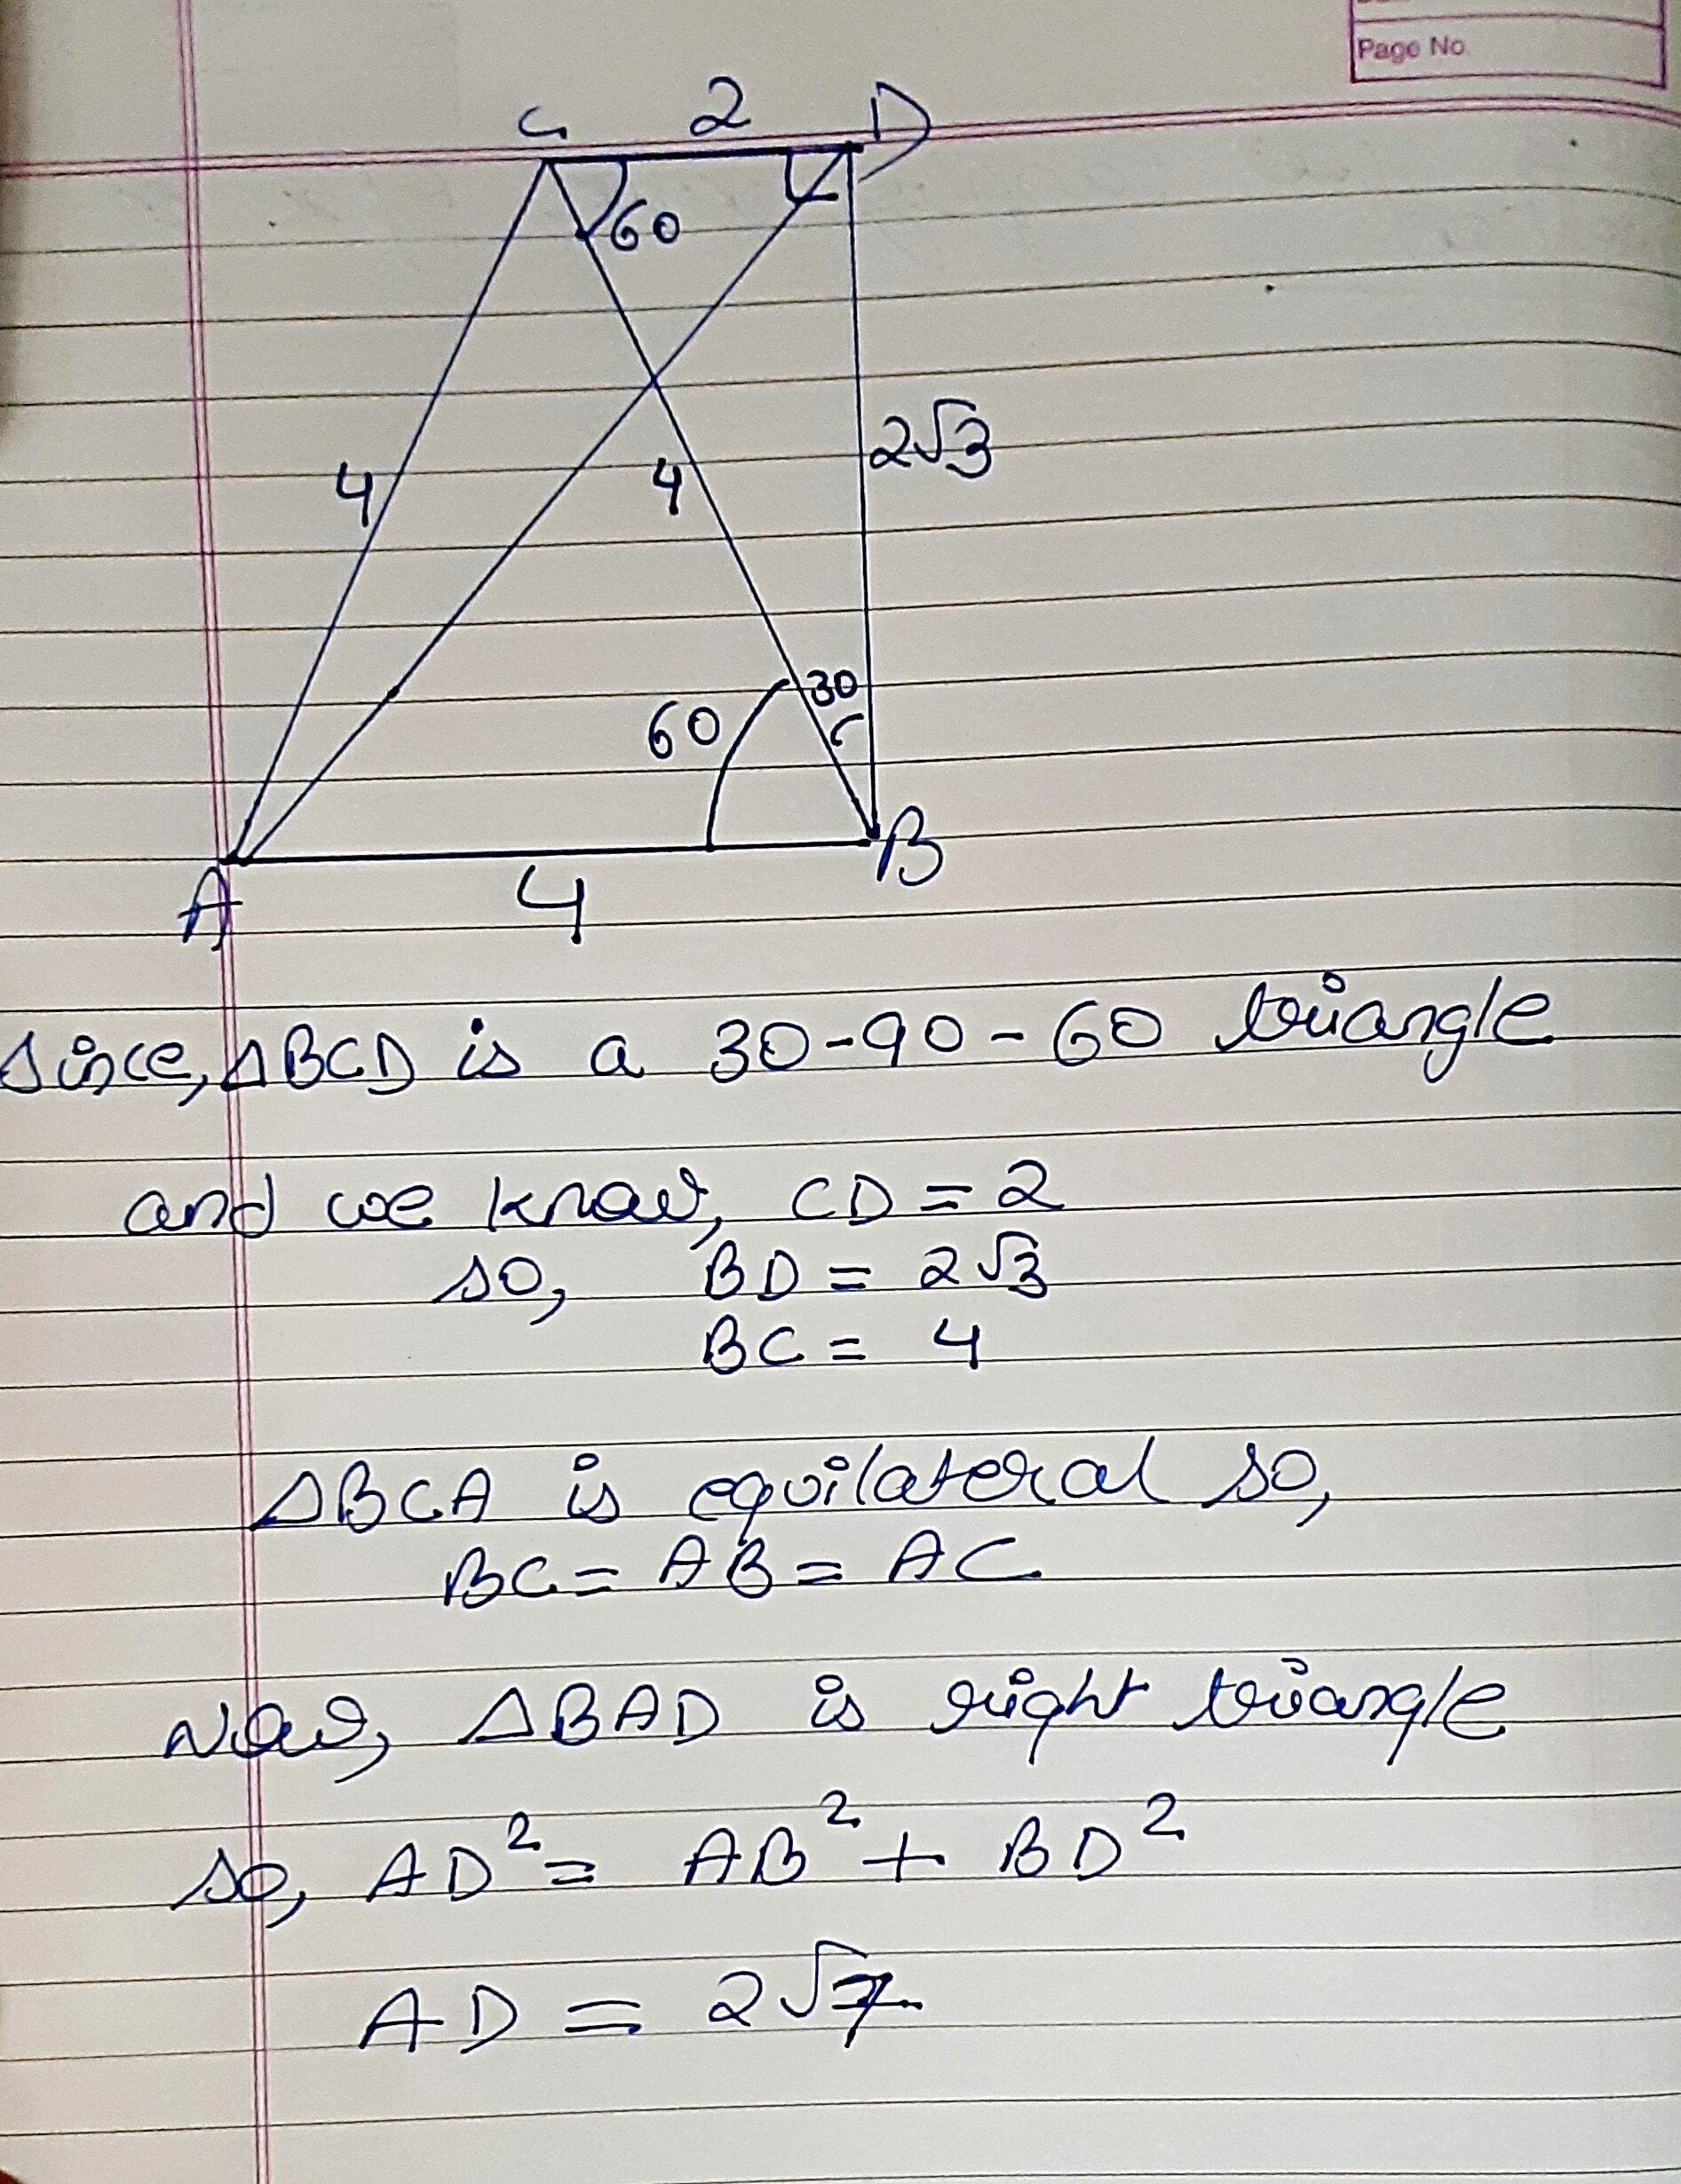 Page No
C 2 D
60
4 4 2√3
30
60
B
A 4
Since, ΔBCD is a 30-90-60 triangle
and we know, CD = 2
so, BD = 2√3
BC = 4
ΔBCA is equilateral so,
BC = AB = AC
Now, ΔBAD is right triangle
so, AD² = AB² + BD²
AD = 2√7